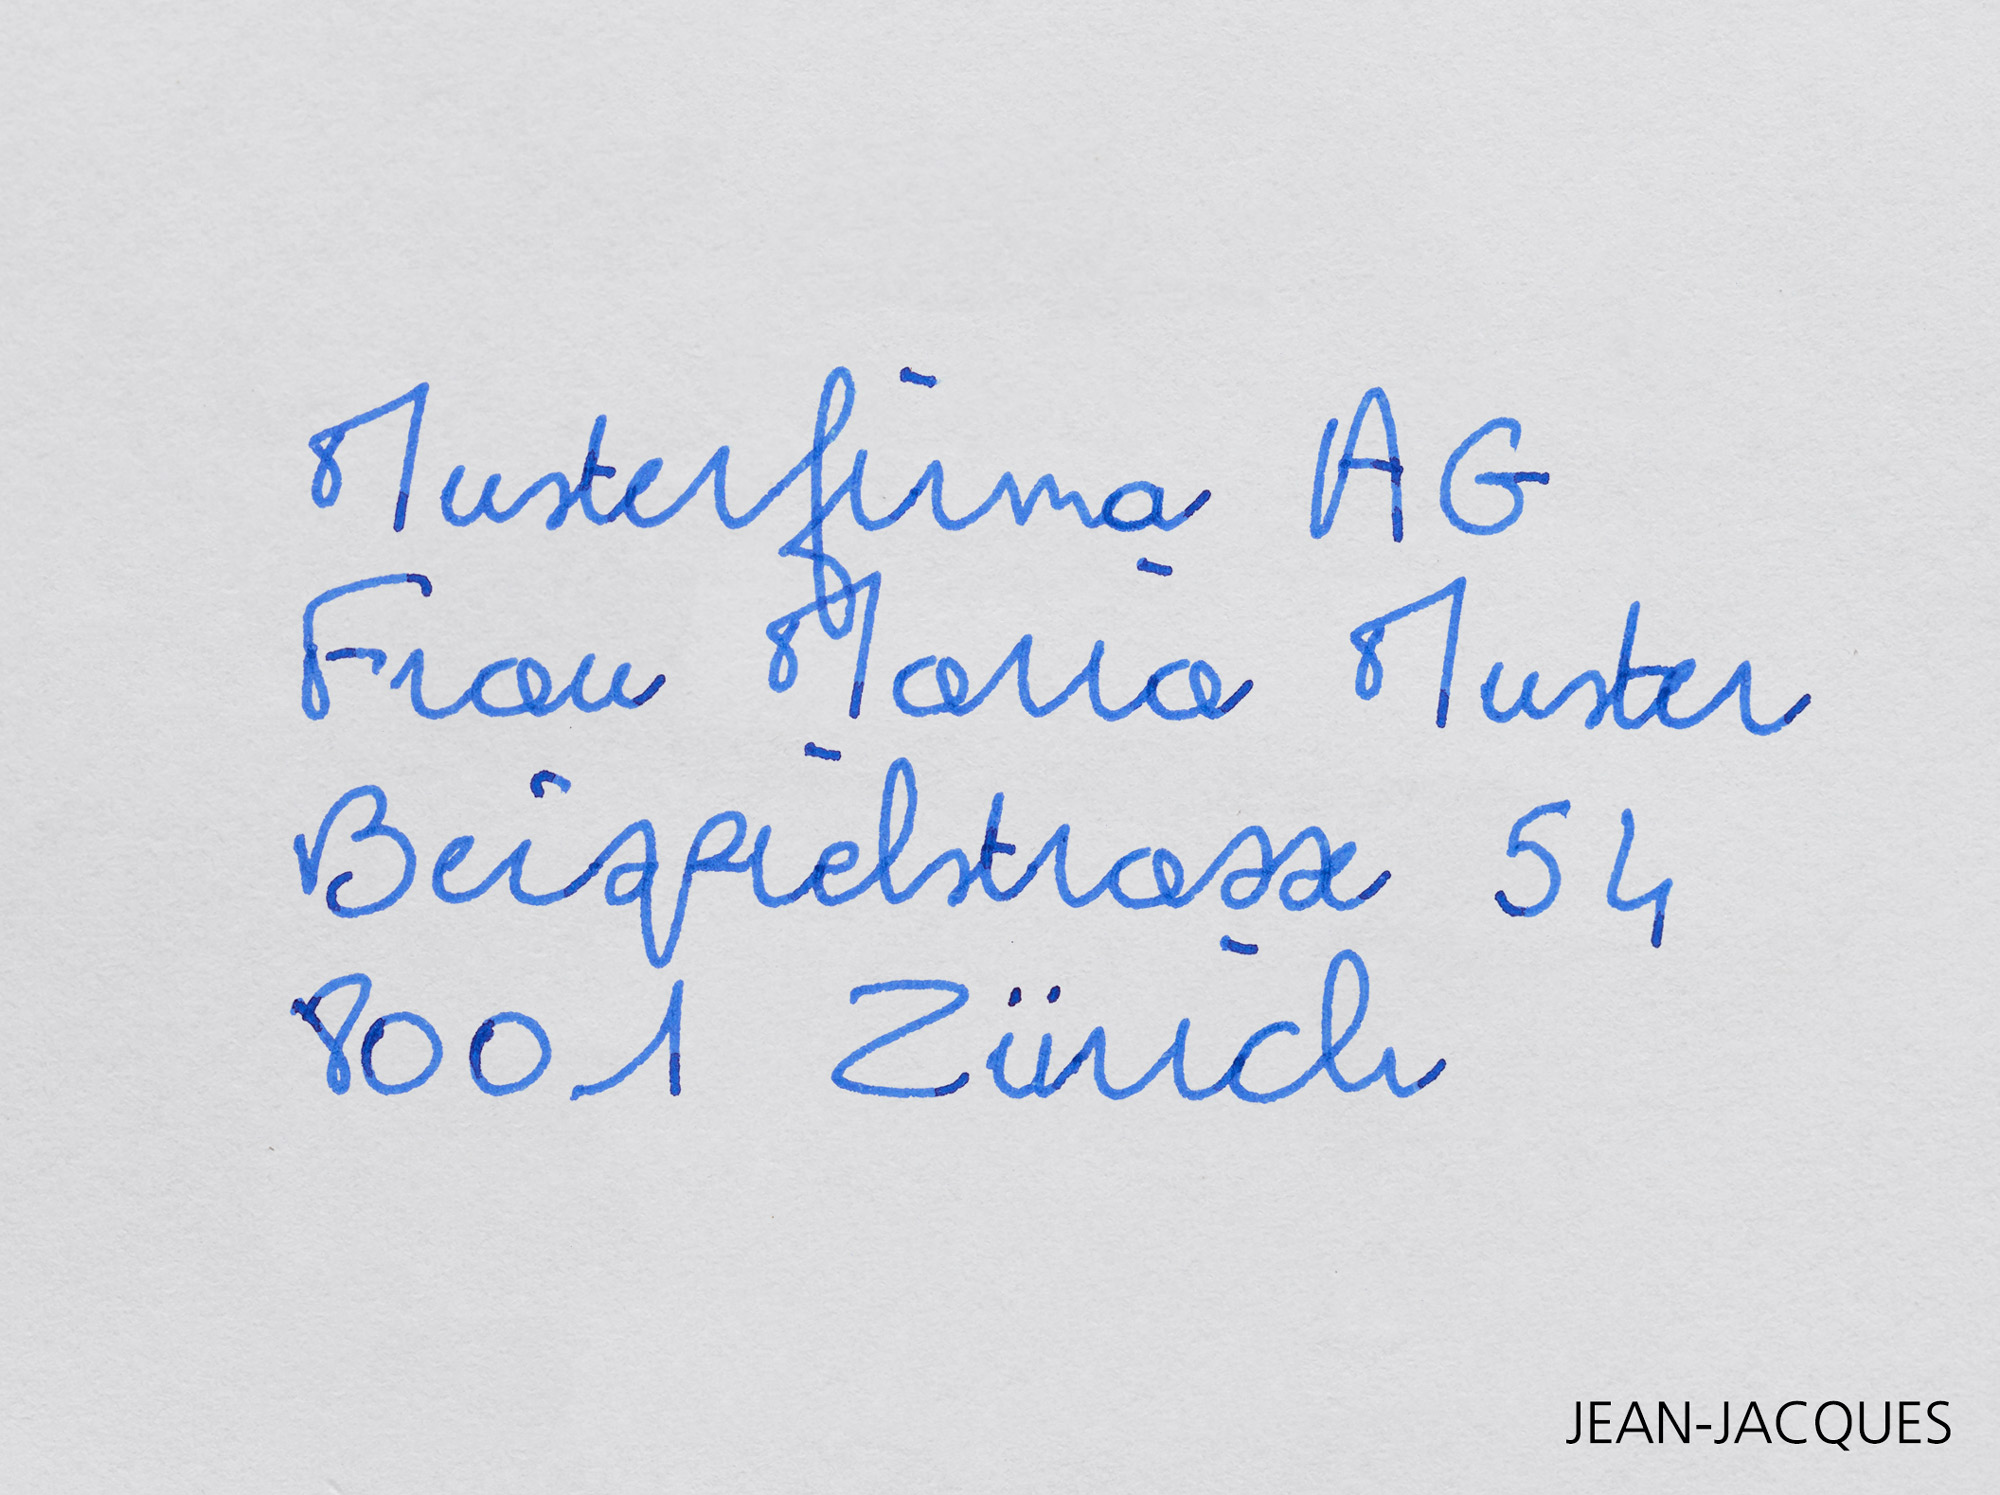 Musterfirma AG
Frau Maria Muster
Beispielstrasse 54
8001 Zürich
JEAN-JACQUES